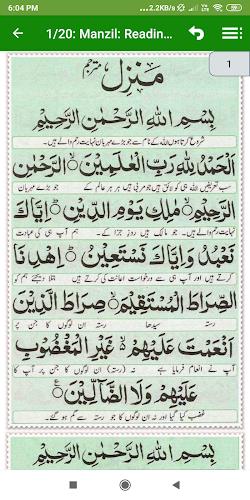 6:04 PM 2.2KB/s
1/20: Manzil: Readin...
1
منزل مترجم
بِسْمِ اللهِ الرَّحْمٰنِ الرَّحِيْمِ
شروع کرتا ہوں اللہ کے نام سے جو بڑے مہربان نہایت رحم والے ہیں۔
اَلْحَمْدُ لِلّٰهِ رَبِّ الْعٰلَمِيْنَ ۙ الرَّحْمٰنِ
سب تعریفیں اللہ ہی کو لائق ہیں جو مربی ہیں ہر ہر عالم کے جو بڑے مہربان
الرَّحِيْمِ ۙ مٰلِكِ يَوْمِ الدِّيْنِ ؕ اِيَّاكَ
نہایت رحم والے ہیں۔ جو مالک ہیں روزِ جزا کے۔ ہم آپ ہی کی عبادت
نَعْبُدُ وَاِيَّاكَ نَسْتَعِيْنُ ؕ اِهْدِنَا
کرتے ہیں اور آپ ہی سے درخواست اعانت کی کرتے ہیں بتلا دیجئے ہم کو
الصِّرَاطَ الْمُسْتَقِيْمَ ۙ صِرَاطَ الَّذِيْنَ
رستہ سیدھا رستہ ان لوگوں کا جن پر
اَنْعَمْتَ عَلَيْهِمْ ۙ غَيْرِ الْمَغْضُوْبِ
آپ نے انعام فرمایا ہے نہ (رستہ) ان لوگوں کا جن پر آپ کا
عَلَيْهِمْ وَلَا الضَّآلِّيْنَ
غضب کیا گیا اور نہ ان لوگوں کا جو رستہ سے گم ہو گئے۔
بِسْمِ اللهِ الرَّحْمٰنِ الرَّحِيْمِ